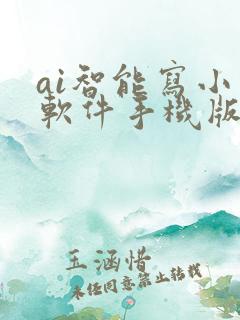 ai智能寫小
軟件手機版
王涵惜
未任同意禁止转载